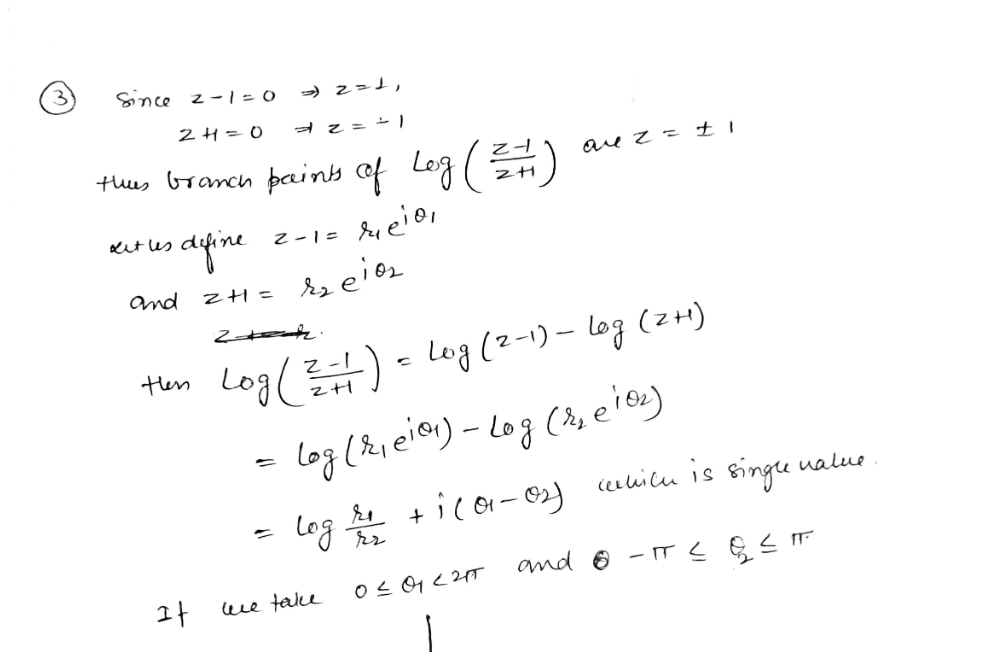 ③ Since z-1=0 ⇒ z=1,
z+1=0 ⇒ z=-1
thus branch points of Log(z-1/z+1) are z = ±1
Let us define z-1 = r₁e^{iθ₁}
and z+1 = r₂ e^{iθ₂}
then Log(z-1/z+1) = Log(z-1) - Log(z+1)
= Log(r₁e^{iθ₁}) - Log(r₂e^{iθ₂})
= Log r₁/r₂ + i(θ₁-θ₂) which is single value.
If we take 0 ≤ θ₁ < 2π and -π ≤ θ₂ ≤ π.